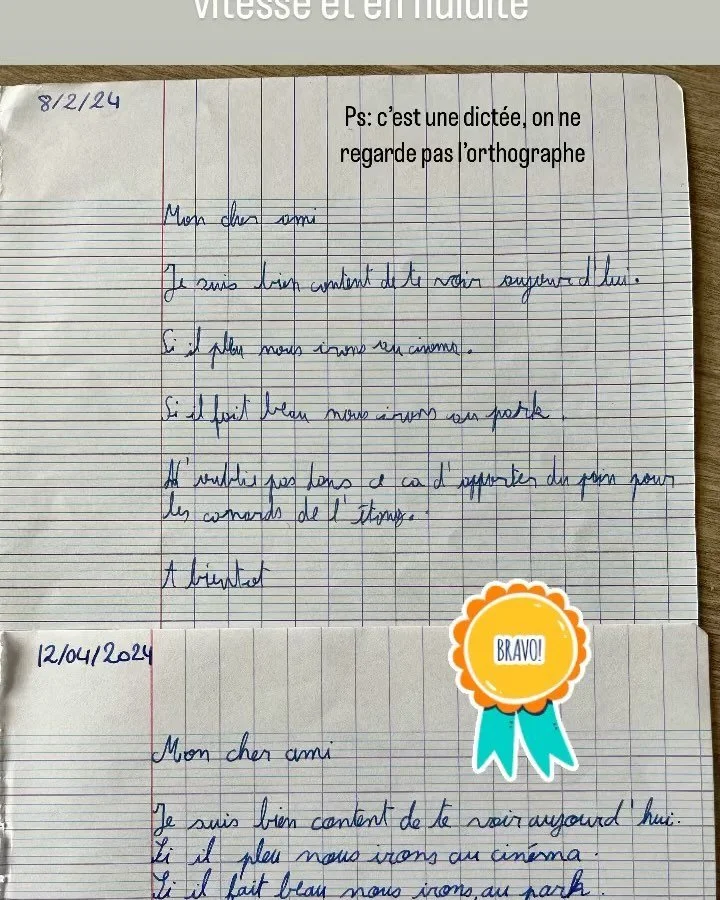 vitesse et en fluidité
8/2/24
Ps: c'est une dictée, on ne
regarde pas l'orthographe
Mon cher ami
Je suis bien content de te voir aujourd'hui.
Si il pleu nous irons au cinema.
Si il fait beau nous irons au park.
N'oublie pas dans ce ca d'apporter du pain pour
les canards de l'étang.
A bientot
BRAVO!
12/04/2024
Mon cher ami
Je suis bien content de te voir aujourd'hui.
Si il pleu nous irons au cinéma.
Si il fait beau nous irons au park.